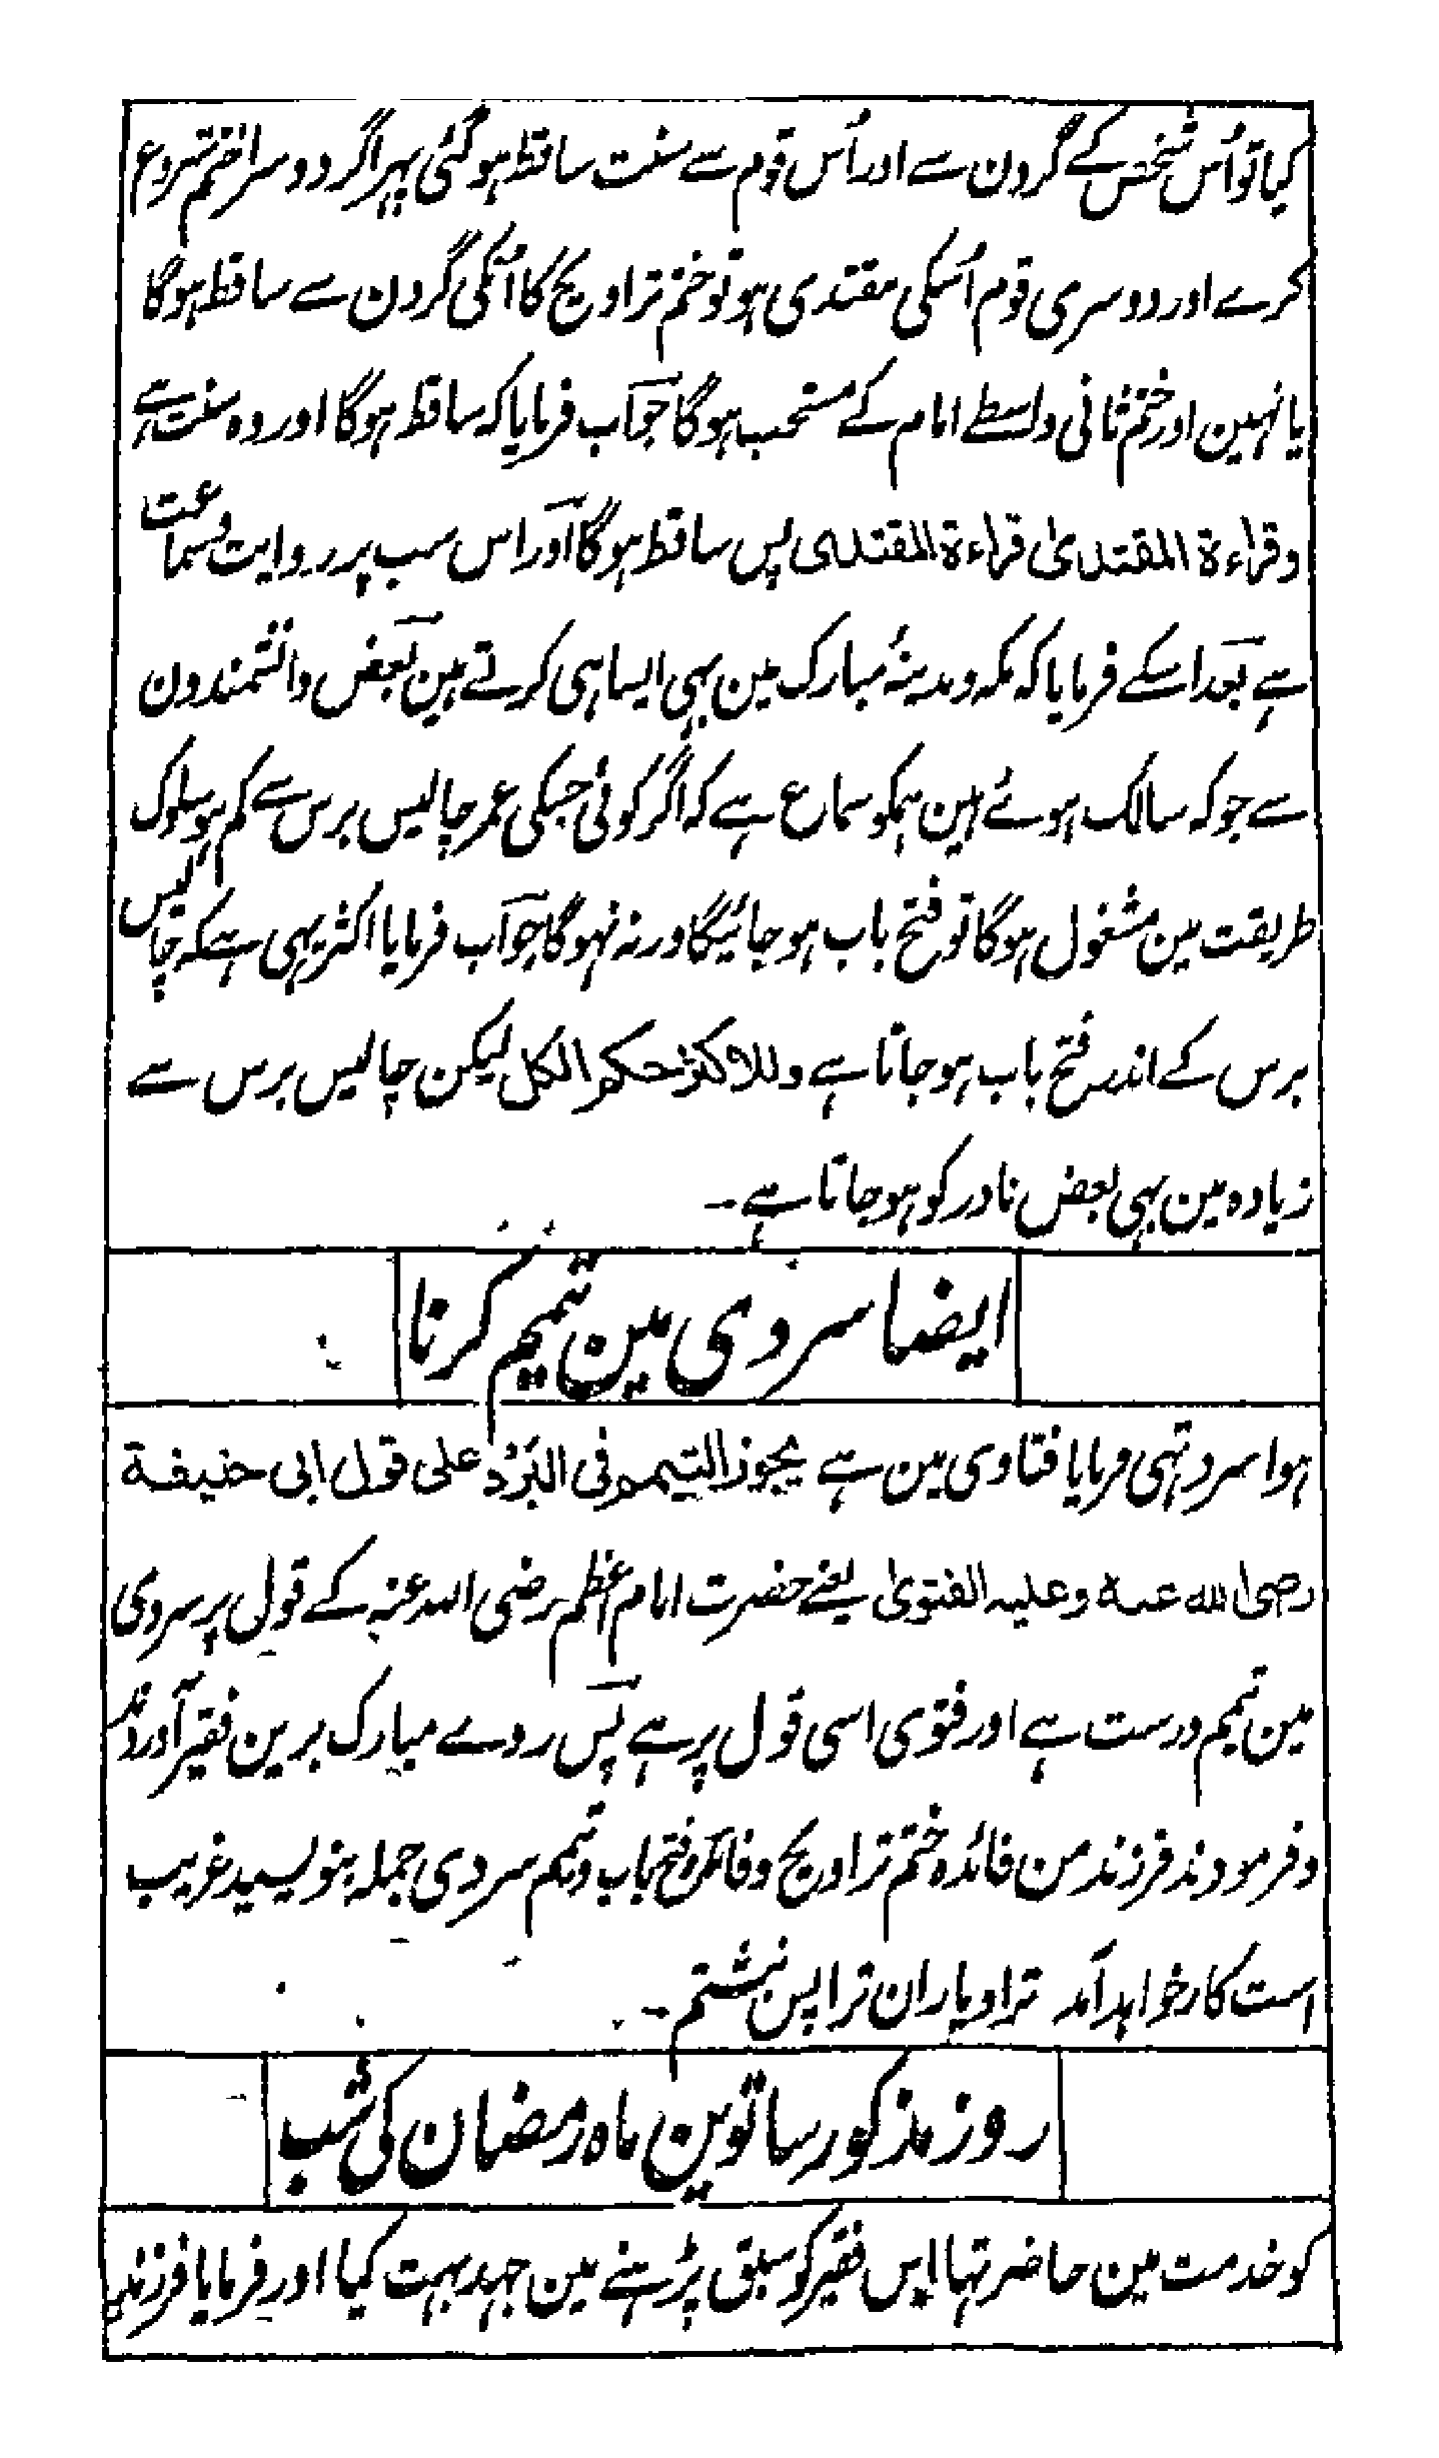 کیا تو اُس شخص کے گردن سے اور اُس قوم سے سنت ساقط ہو گئی پہر اگر دوسرا ختم شروع
کرے اور دوسری قوم اُسکی مقتدی ہو تو ختم تراویح کا اُنکی گردن سے ساقط ہوگا
یا نہین اور ختم ثانی واسطے امام کے مستحب ہوگا جواب فرمایا کہ ساقط ہوگا اور وہ سنت ہے
وقراءة المقتدیٰ قراءة المقتدی پس ساقط ہوگا اور اس سب پر روایت وسماعت
ہے بعد اسکے فرمایا کہ مکہ و مدینۂ مبارک مین بہی ایسا ہی کرتے ہین بعض دانشمندون
سے جو کہ سالک ہوئے ہین ہمکو سماع ہے کہ اگر کوئی جسکی عمر چالیس برس سے کم ہو سلوک
طریقت مین مشغول ہوگا تو فتح باب ہو جائیگا ورنہ نہوگا جواب فرمایا اکثر یہی ہے کہ چالیس
برس کے اندر فتح باب ہو جاتا ہے وللاکثر حکم الکل لیکن چالیس برس سے
زیادہ مین بہی بعض نادر کو ہو جاتا ہے ۔
ایضا سردی مین تیمم کرنا
ہوا سرد تہی فرمایا فتاوی مین ہے یجوز التیمم فی البَرْد علی قول ابی حنیفة
رضی الله عنه وعلیه الفتویٰ یعنے حضرت امام اعظم رضی اللہ عنہ کے قول پر سردی
مین تیمم درست ہے اور فتوی اسی قول پر ہے پس روے مبارک برین فقیر آوردند
و فرمودند فرزند من فائدہ ختم تراویح و فائدہ فتح باب و تیمم سردی جملہ بنویسید غریب
است کار خواہد آمد ترا و یاران ترا پس نبشتم ۔
روز مذکور ساتوین ماہ رمضان کی شب
کو خدمت مین حاضر تہا اس فقیر کو سبق پڑہنے مین جہد بہت کیا اور فرمایا فرزند